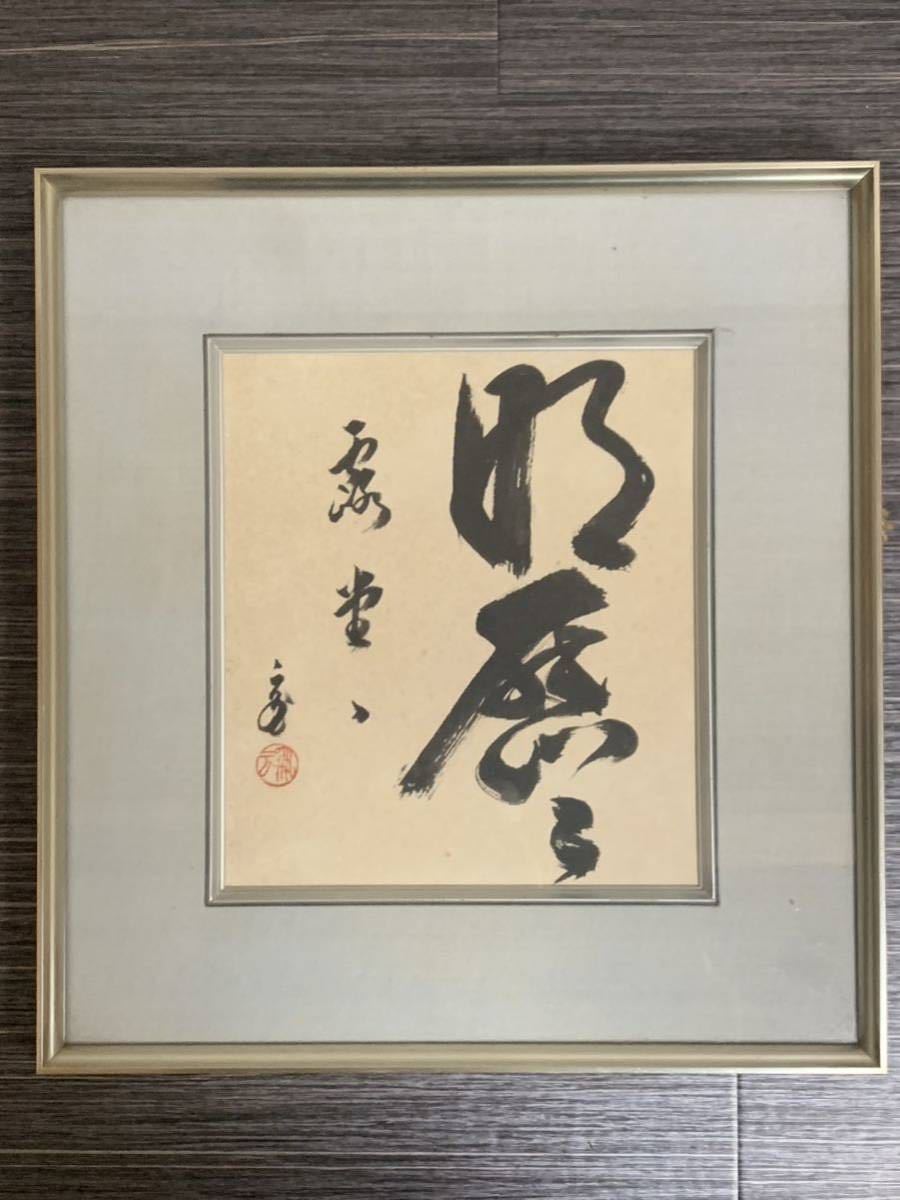 明歴々
露堂々